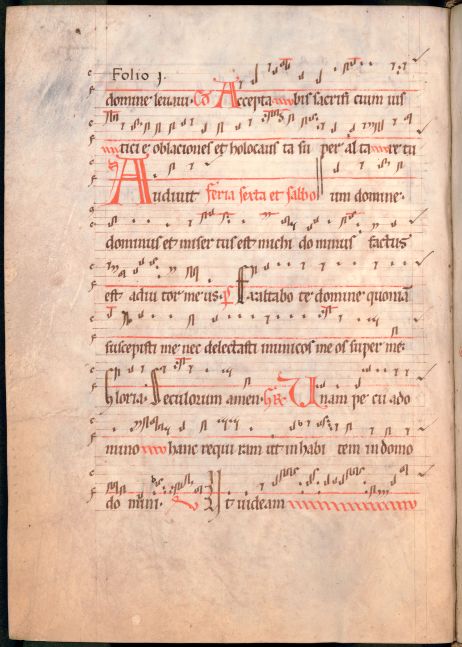 Folio j.
domine leuaui. Co Accepta bis sacrifi cium ius
ticie oblaciones et holocaus ta su per al ta re tu
Audiuit feria sexta et salbo um domine.
dominus et miser tus est michi do minus factus
est adiu tor me us. Exaltabo te domine quoniam
suscepisti me nec delectasti inimicos me os super me.
Gloria. Seculorum amen. Unam pe cii ado
mino hanc requi ram utt in habi tem in domo
do mini. Ut uideam